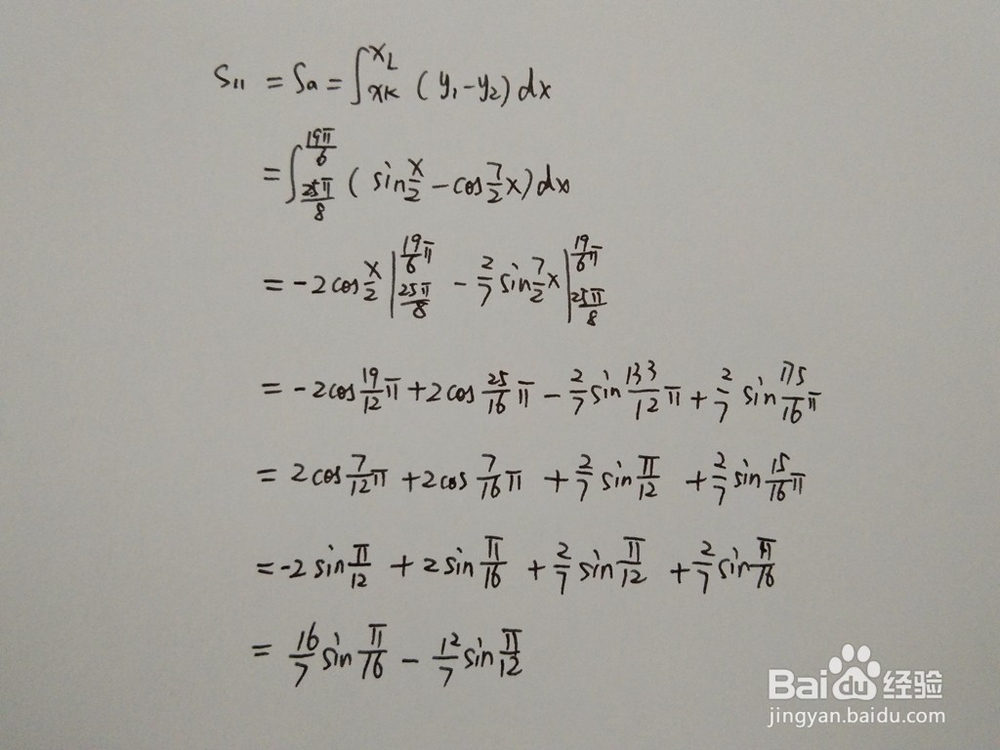 S₁₁ = Sa = ∫_{xK}^{xL} (y₁-y₂) dx
= ∫_{25π/8}^{19π/6} (sin x/2 - cos 7/2 x) dx
= -2cos x/2 |_{25π/8}^{19/6 π} - 2/7 sin 7/2 x |_{25π/8}^{19/6 π}
= -2cos 19/12 π + 2cos 25/16 π - 2/7 sin 133/12 π + 2/7 sin 175/16 π
= 2cos 7/12 π + 2cos 7/16 π + 2/7 sin π/12 + 2/7 sin 15/16 π
= -2sin π/12 + 2sin π/16 + 2/7 sin π/12 + 2/7 sin π/16
= 16/7 sin π/16 - 12/7 sin π/12
Baidu经验
jingyan.baidu.com